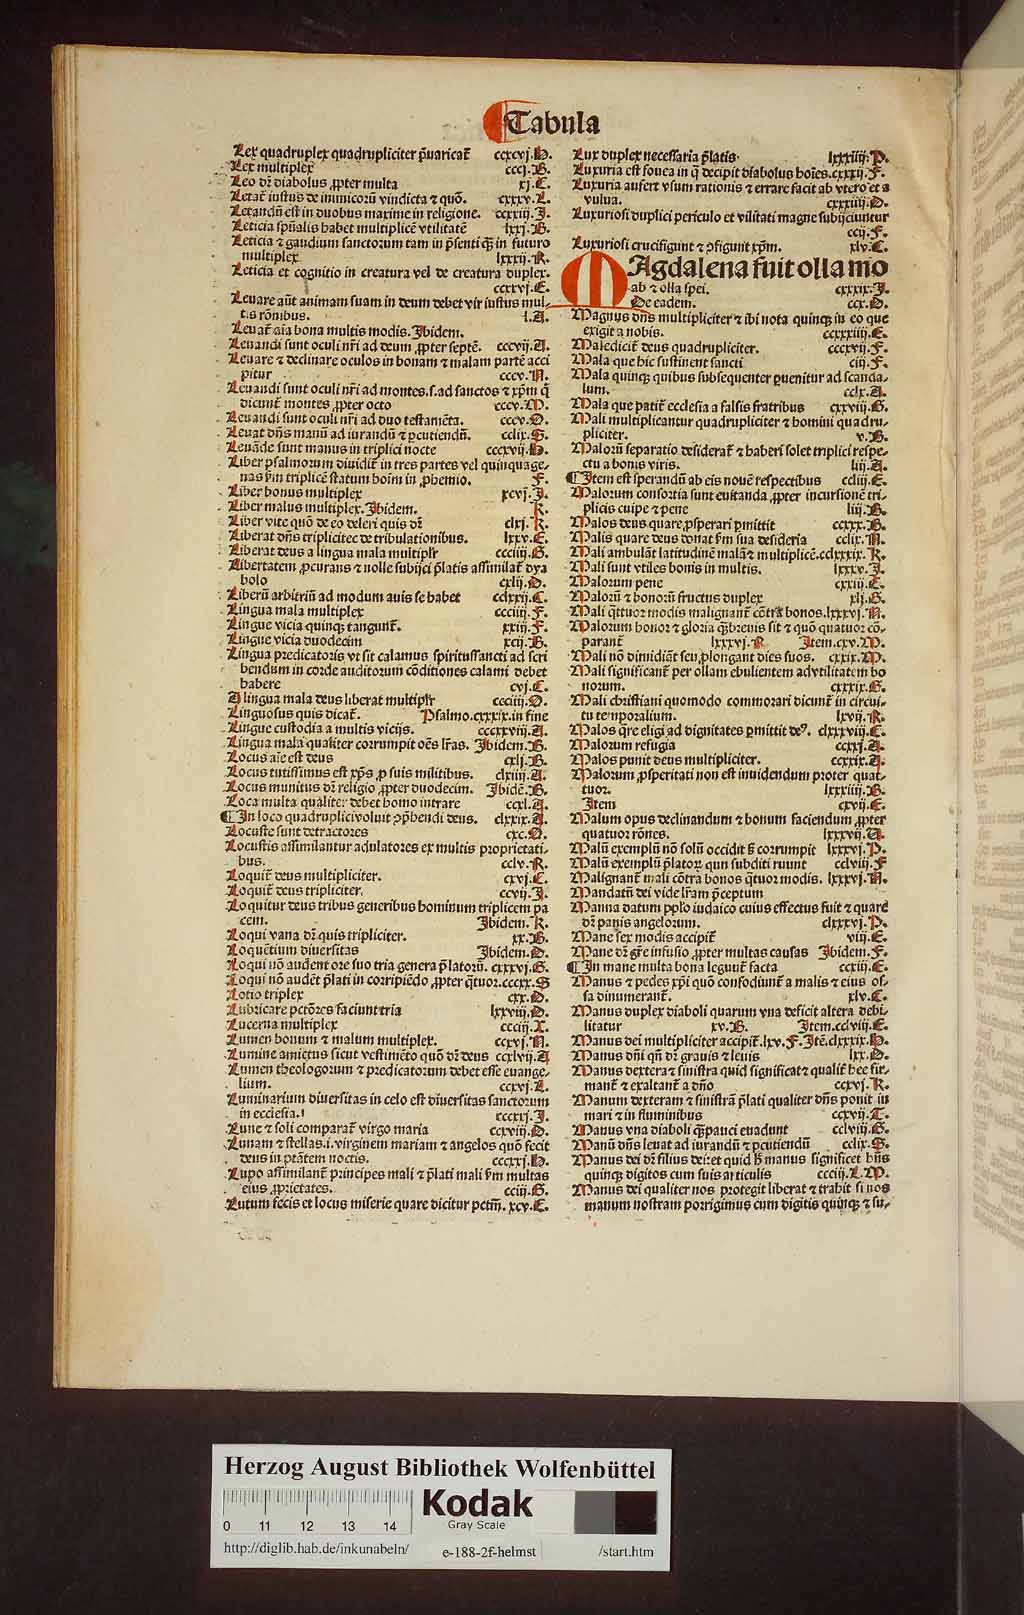 Tabula
Lex quadruplex quadrupliciter p̄uaricat̄ ccxcvj.H.
Lex multiplex cccj.B.
Leo dr̄ diabolus ꝓpter multa xj.C.
Letat̄ iustus de inimicorū vindicta ⁊ quō. cxxxv.L.
Letandū est in duobus maxime in religione. ccxxiij.J.
Leticia sp̄ualis habet multiplicē vtilitatē lxxj.B.
Leticia ⁊ gaudium sanctorum tam in p̄senti qȝ in futuro
multiplex lxxxij.R.
Leticia et cognitio in creatura vel de creatura duplex.
ccxxvj.E.
Leuare aūt animam suam in deum debet vir iustus mul-
tis rōnibus. l.A.
Leuat̄ aīa bona multis modis. Jbidem.
Leuandi sunt oculi nr̄i ad deum ꝓpter septē. cccvij.A.
Leuare ⁊ declinare oculos in bonam ⁊ malam partē acci
pitur cccv.N.
Leuandi sunt oculi nr̄i ad montes.s.ad sanctos ⁊ xp̄m q̄
dicunt̄ montes ꝓpter octo cccv.M.
Leuandi sunt oculi nr̄i ad duo testamēta. cccv.O.
Leuat dn̄s manū ad iurandū ⁊ ꝑcutiendū. cclix.S.
Leuāde sunt manus in triplici nocte cccxvij.H.
Liber psalmorum diuidit̄ in tres partes vel quinquage-
nas ẜm triplicē statum hoīm in ꝓhemio. F.
Liber bonus multiplex xcvj.J.
Liber malus multiplex. Jbidem. K.
Liber vite quō de eo deleri quis dr̄ clxj.K.
Liberat dn̄s tripliciter de tribulationibus. lxxv.E.
Liberat deus a lingua mala multipl̄r ccciiij.G.
Libertatem ꝓcurans ⁊ nolle subijci p̄latis assimilat̄ dya
bolo cxlij.D.
Liberū arbitriū ad modum auis se habet cclxxij.C.
Lingua mala multiplex ccciiij.F.
Lingue vicia quinqȝ tangunt̄. xxiij.F.
Lingue vicia duodecim xcij.B.
Lingua predicatoris vt sit calamus spiritussancti ad scri
bendum in corde auditorum cōditiones calami debet
habere cvj.C.
A lingua mala deus liberat multipl̄r ccciiij.O.
Linguosus quis dicat̄. Psalmo.cxxxix.in fine
Lingue custodia a multis vicijs. ccccxviij.A.
Lingua mala qualiter corrumpit oēs lr̄as. Jbidem.B.
Locus aīe est deus cxlj.B.
Locus tutissimus est xp̄s ꝓ suis militibus. clxiij.A.
Locus munitus dr̄ religio ꝓpter duodecim. Jbidē.B.
Loca multa qualiter debet homo intrare ccxl.A.
¶ In loco quadruplici voluit ꝯp̄hendi deus. clxxix.A.
Locuste sunt detractores cxc.O.
Locustis assimilantur adulatores ex multis proprietati-
bus. cclv.R.
Loquit̄ deus multipliciter. cxvj.C.
Loquit̄ deus tripliciter. ccvij.J.
Loquitur deus tribus generibus hominum triplicem pa
cem. Jbidem.K.
Loqui vana dr̄ quis tripliciter. xx.B.
Loquētium diuersitas Jbidem.D.
Loqui nō audent ore suo tria genera p̄latorū. cxxxvj.G.
Loqui nō audēt p̄lati in corripiēdo ꝓpter q̄tuor.ccccx.S
Lotio triplex cxx.D.
Lubricare pctōres faciunt tria lxxviij.D.
Lucerna multiplex cccij.X.
Lumen bonum ⁊ malum multiplex. ccxvj.N.
Lumine amictus sicut vestimēto quō dr̄ deus ccxlvij.A
Lumen theologorum ⁊ predicatorum debet esse euange-
lium. ccxvj.L.
Luminarium diuersitas in celo est diuersitas sanctorum
in ecclesia. ccccxxj.J.
Lune ⁊ soli comparat̄ virgo maria ccxviij.D.
Lunam ⁊ stellas.i.virginem mariam ⁊ angelos quō fecit
deus in ptātem noctis. cccxxj.H.
Lupo assimilant̄ principes mali ⁊ p̄lati mali ẜm multas
eius ꝓprietates. cciij.G.
Lutum fecis et locus miserie quare dicitur pctm̄. xcv.E.
Lux duplex necessaria p̄latis. lxxxiiij.P.
Luxuria est fouea in q̄ decipit diabolus hoīes.cxxxij.F.
Luxuria aufert vsum rationis ⁊ errare facit ab vtero et a
vulua. cxxxiij.D.
Luxuriosi duplici periculo et vilitati magne subijciuntur
ccij.F.
Luxuriosi crucifigunt ⁊ ꝯfigunt xp̄m. xlv.C.
MAgdalena fuit olla mo
ab ⁊ olla spei. cxxxix.J.
De eadem. ccx.D.
Magnus dn̄s multipliciter ⁊ ibi nota quinqȝ in eo que
exigit a nobis. ccccxxiiij.E.
Maledicit̄ deus quadrupliciter. cccxvij.F.
Mala que hic sustinent sancti ciij.F.
Mala quinqȝ quibus subsequenter ꝑuenitur ad scanda-
lum. cclx.A.
Mala que patit̄ ecclesia a falsis fratribus cxxviij.G.
Mali multiplicantur quadrupliciter ⁊ homini quadru-
pliciter. v.B.
Malorū separatio desiderat̄ ⁊ haberi solet triplici respe-
ctu a bonis viris. liij.A.
¶ Item est sperandū ab eis nouē respectibus ccliij.E.
Malorum consortia sunt euitanda ꝓpter incursionē tri-
plicis culpe ⁊ pene liij.B.
Malos deus quare ꝓsperari ꝑmittit ccxxx.B.
Malis quare deus donat ẜm sua desideria cclix.N.
Mali ambulāt latitudinē malā ⁊ multiplicē.cclxxxix.K.
Mali sunt vtiles bonis in multis. lxxxv.J.
Malorum pene cxxiij.C.
Malorū ⁊ bonorū fructus duplex xlj.G.
Mali q̄ttuor modis malignant̄ cōtra bonos.lxxxvj.N.
Malorum honor ⁊ gloria qȝ breuis sit ⁊ quō quatuor cō-
parant̄ lxxxvj.R. Item.cxv.M.
Mali nō dimidiāt seu ꝓlongant dies suos. cxxix.M.
Mali significant̄ per ollam ebulientem ad vtilitatem bo
norum. cxxxix.G.
Mali christiani quomodo commorari dicunt̄ in circui-
tu temporalium. lxvij.R.
Malos q̄re eligi ad dignitates ꝑmittit deꝰ. clxxxviij.C.
Malorum refugia ccxxj.A.
Malos punit deus multipliciter. ccxxix.A.
Malorum ꝓsperitati non est inuidendum propter quat-
tuor. lxxxiiij.B.
Item cxvij.E.
Malum opus declinandum ⁊ bonum faciendum ꝓpter
quatuor rōnes. lxxxvij.A.
Malū exemplū nō solū occidit sȝ corrumpit lxxxvj.P.
Malū exemplū p̄latoꝝ quo subditi ruunt cclviij.F
Malignant̄ mali cōtra bonos q̄tuor modis. lxxxvj.N.
Mandatū dei vide lr̄am p̄ceptum
Manna datum pplo iudaico cuius effectus fuit ⁊ quare
dr̄ panis angelorum. clxxxvj.P.
Mane sex modis accipit̄ viij.E.
Mane dr̄ gr̄e infusio ꝓpter multas causas Jbidem.F.
¶ In mane multa bona legunt̄ facta ccxiij.E.
Manus ⁊ pedes xp̄i quō confodiunt̄ a malis ⁊ eius os-
sa dinumerant̄. xlv.C.
Manus duplex diaboli quarum vna deficit altera debi-
litatur xv.B. Item.cclviij.E.
Manus dei multipliciter accipit̄.lxv.F.Jtē.clxxxix.H.
Manus dn̄i qn̄ dr̄ grauis ⁊ leuis lxx.D.
Manus dextera ⁊ sinistra quid significat ⁊ qualit̄ hee fir-
mant̄ ⁊ exaltant̄ a dn̄o ccxvj.K.
Manum dexteram ⁊ sinistrā p̄lati qualiter dn̄s ponit in
mari ⁊ in fluminibus ccxvij.T.
Manus vna diaboli qȝ pauci euadunt cclviij.G.
Manū dn̄s leuat ad iurandū ⁊ ꝑcutiendū cclix.S.
Manus dei dr̄ filius dei:et quid hec manus significet hn̄s
quinqȝ digitos cum suis articulis ccciij.L.M.
Manus dei qualiter nos protegit liberat ⁊ trahit si nos
manum nostram porrigimus cum digitis quinqȝ ⁊ su-
Herzog August Bibliothek Wolfenbüttel
Kodak
Gray Scale
0 11 12 13 14
http://diglib.hab.de/inkunabeln/ e-188-2f-helmst /start.htm